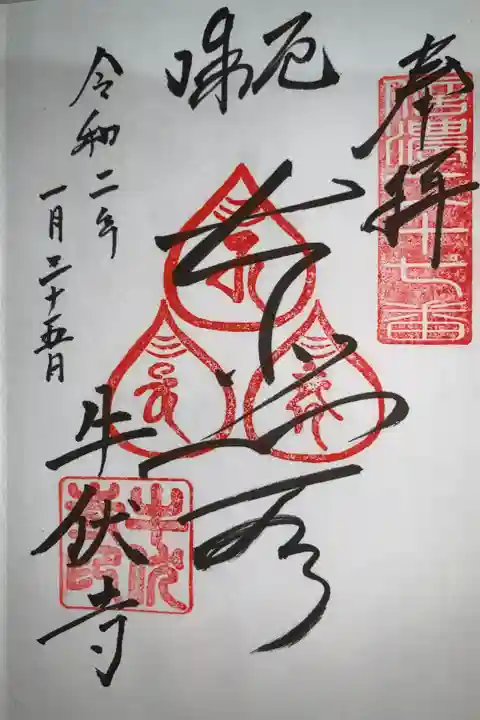 奉拝
信濃二十七番
厄除
令和二年
一月二十五日
牛伏寺
牛伏寺印